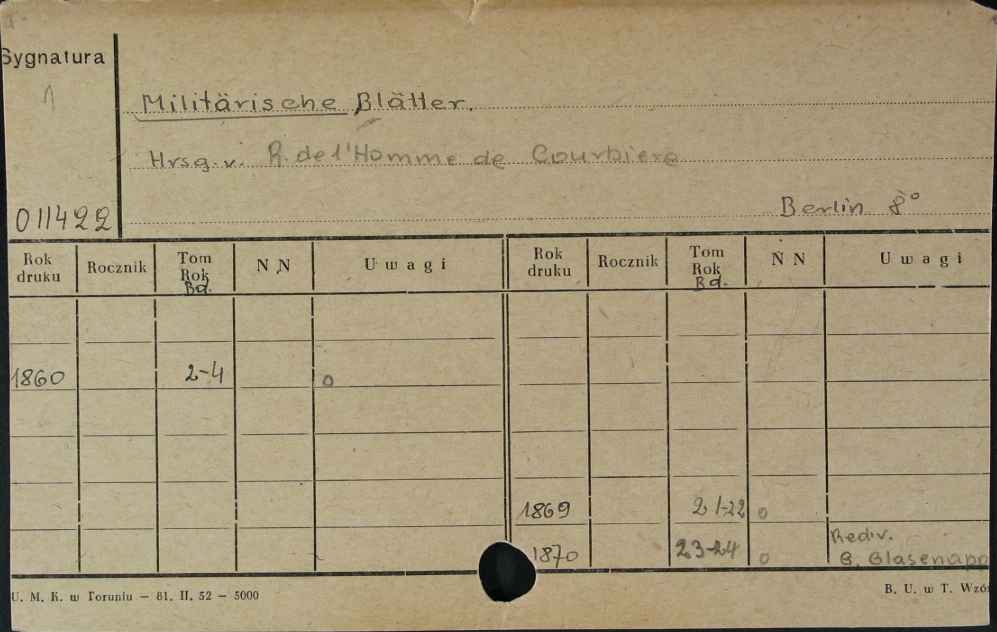 Sygnatura
1
Militärische Blätter.
Hrsg. v. R. de l'Homme de Courbiere
011422
Berlin 8°
Rok druku Rocznik Tom Rok Bd. N N U w a g i Rok druku Rocznik Tom Rok Bd. N N U w a g i
1860 2-4 o
1869 21-22 o
1870 23-24 o Red. v.
G. Glasenapp
U. M. K. w Toruniu — 81. II. 52 — 5000
B. U. w T. Wzór